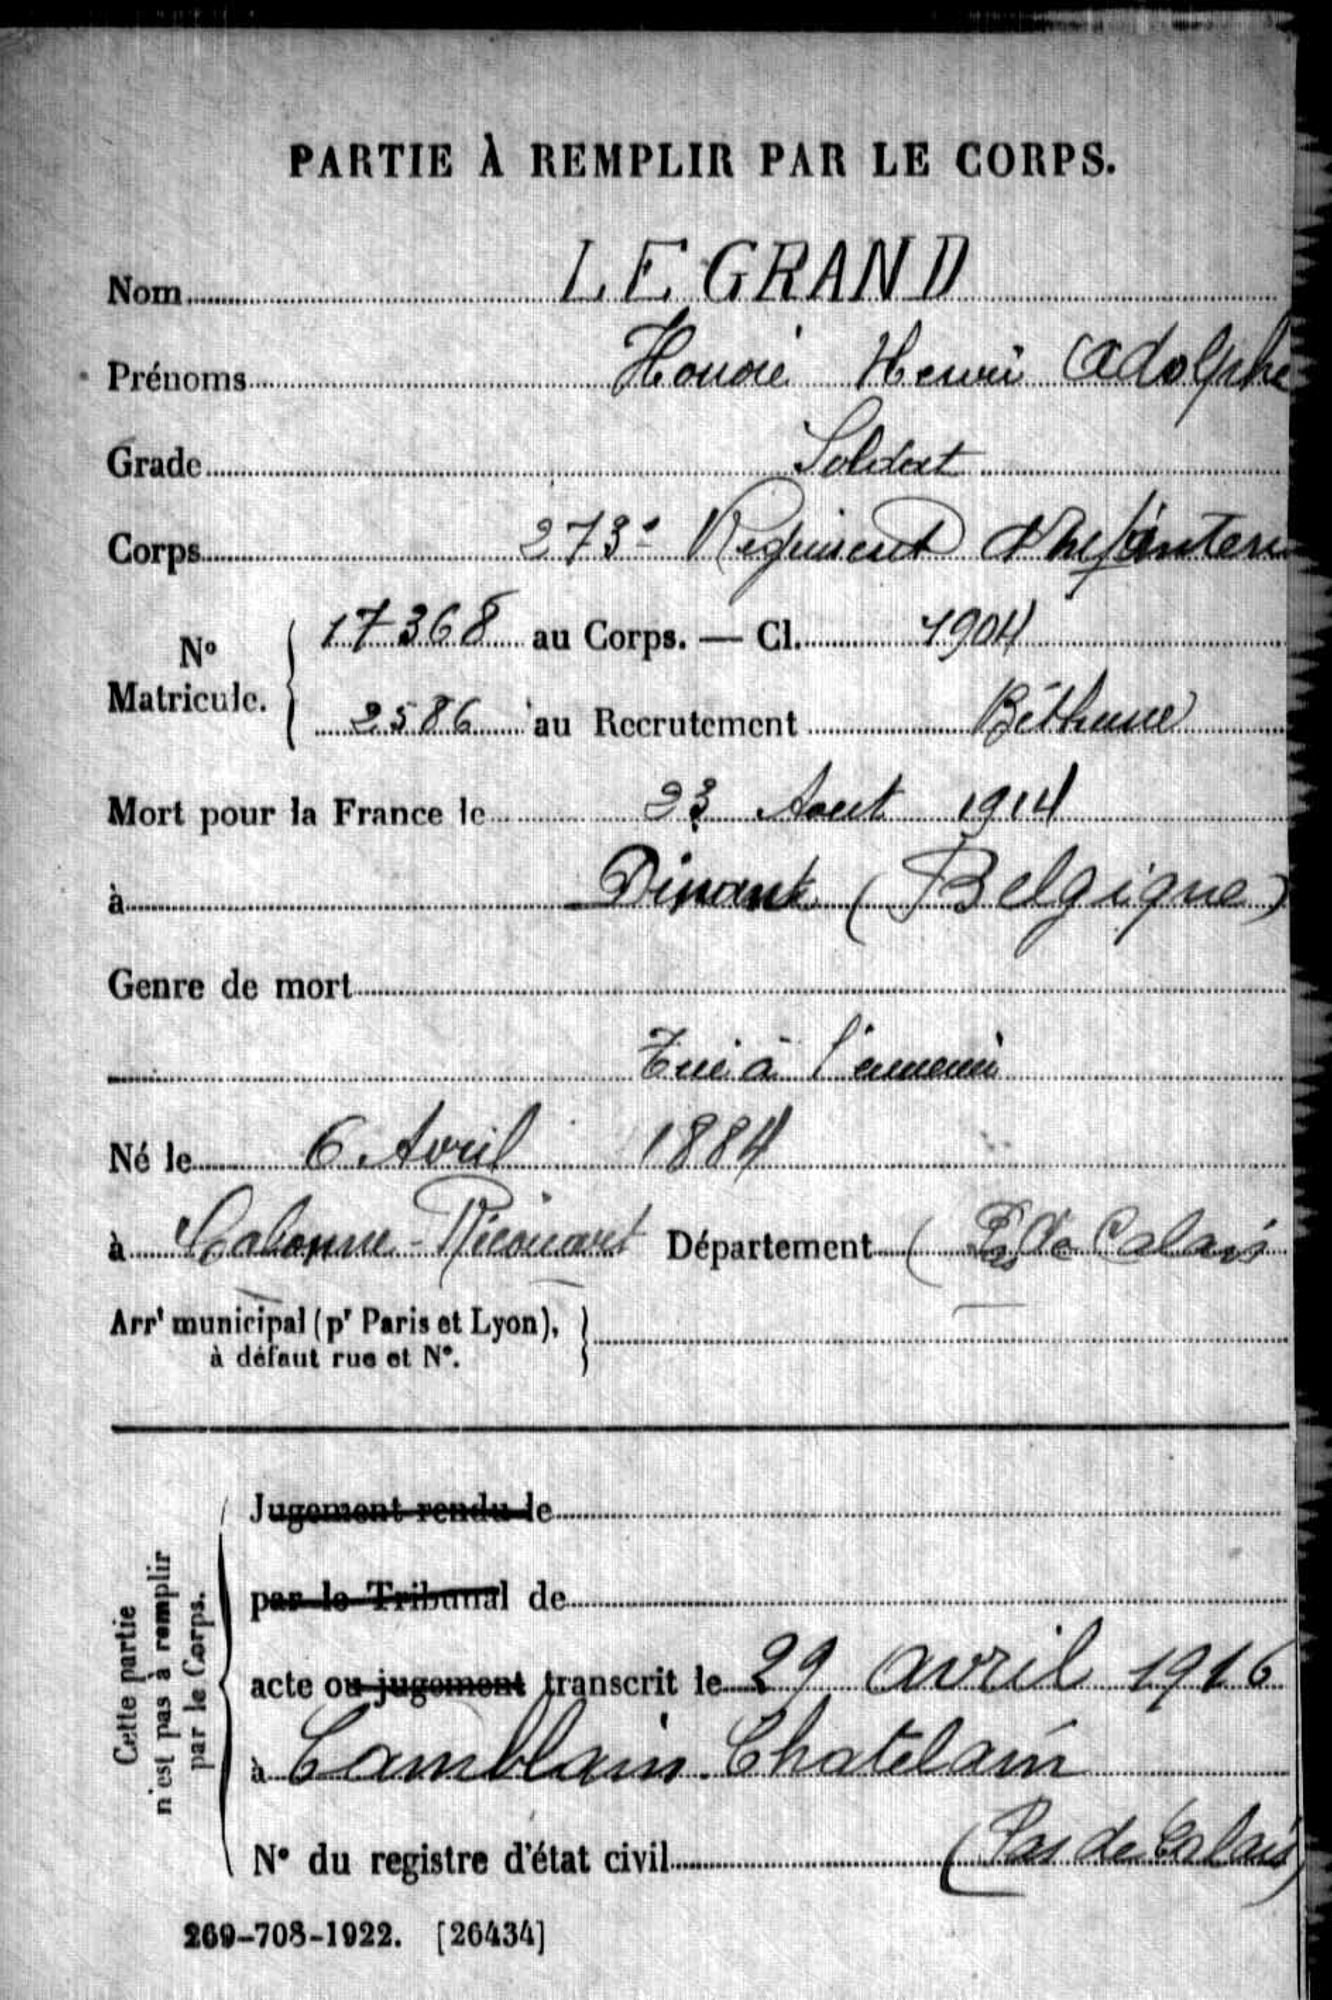 PARTIE À REMPLIR PAR LE CORPS.
Nom LEGRAND
Prénoms Honoré Henri Adolphe
Grade Soldat
Corps 273e Régiment d'Infanterie
No Matricule. 17368 au Corps. — Cl. 1904
2586 au Recrutement Béthune
Mort pour la France le 23 Aout 1914
à Dinant (Belgique)
Genre de mort
Tué à l'ennemi
Né le 6 Avril 1884
à Calonne-Ricouart Département (Pas de Calais
Arrt municipal (pr Paris et Lyon),
à défaut rue et No.
Cette partie
n'est pas à remplir
par le Corps.
Jugement rendu le
par le Tribunal de
acte ou jugement transcrit le 29 avril 1916
à Camblain-Chatelain
(Pas de Calais)
No du registre d'état civil
269-708-1922. [26434]